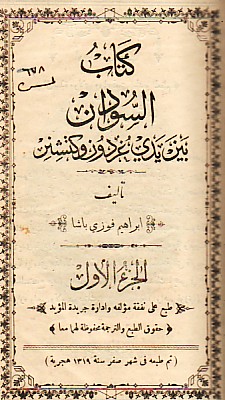 كتاب
السودان
بين يدي غردون وكتشنر
تأليف
ابراهيم فوزي باشا
الجزء الأول
طبع على نفقة مؤلفه وادارة جريدة المؤيد
حقوق الطبع والترجمة محفوظة لهما معا
(تم طبعه في شهر صفر سنة ١٣١٩ هجرية)